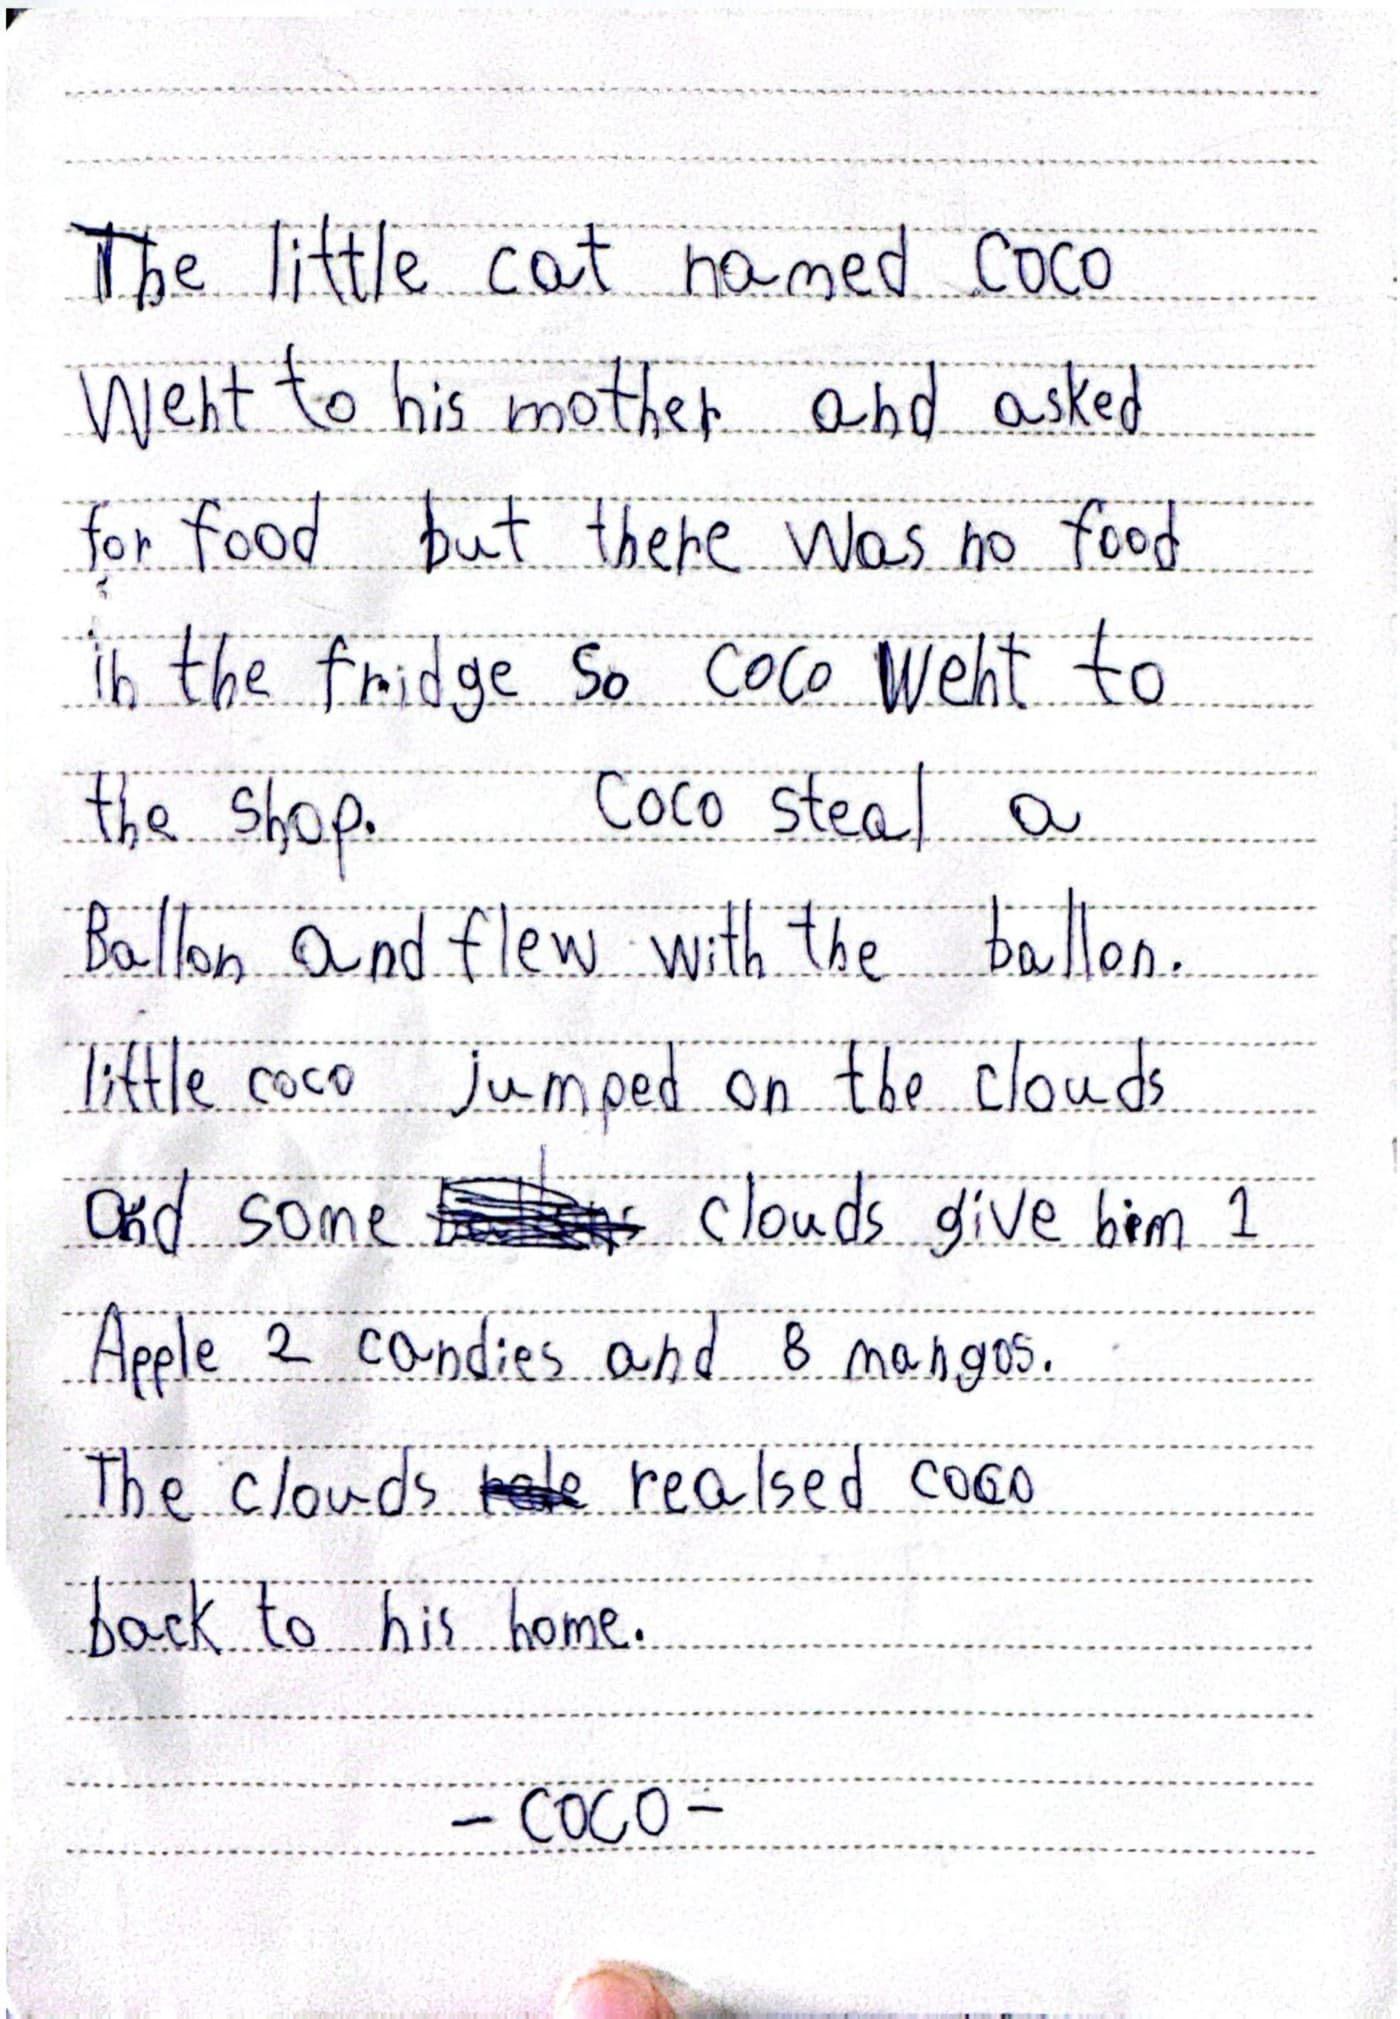 The little cat named coco
Went to his mother and asked
for food but there was no food
in the fridge so coco went to
the shop. Coco steal a
Ballon and flew with the ballon.
little coco jumped on the clouds
and some clouds give him 1
Apple 2 candies and 8 mangos.
The clouds realsed coco
back to his home.
- COCO -